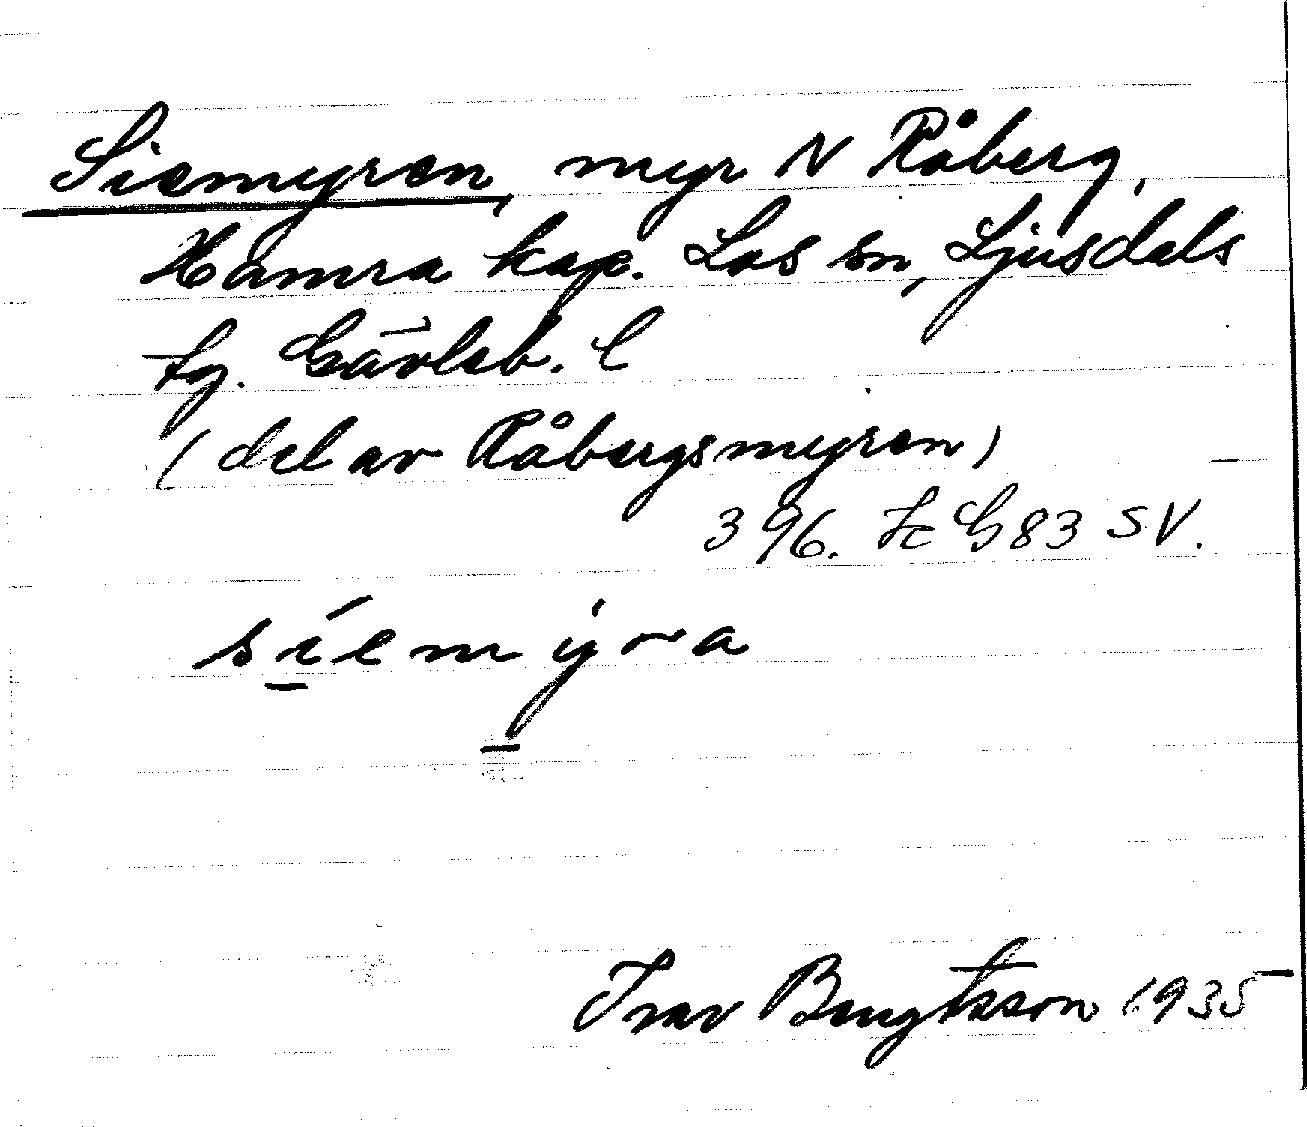 Siemyren, myr N Råberg,
Hamra kap. Los sn, Ljusdals
tg. Gävleb. l
(del av Råbergsmyren)
396. Lc G83 SV.
síemýra
Ivar Bengtsson 1935